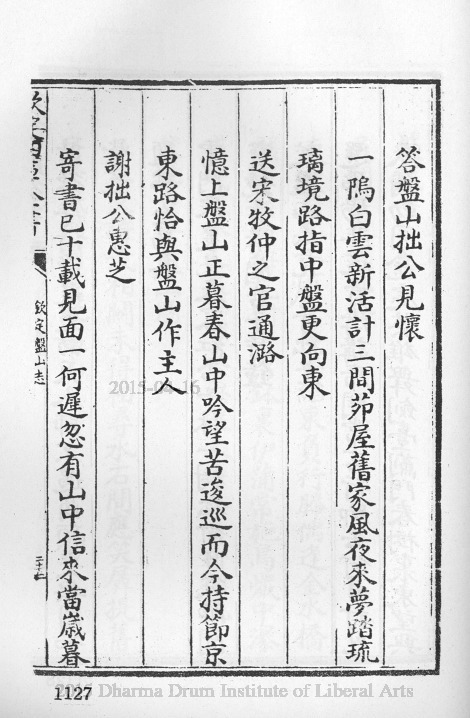 答盤山拙公見懷
一隖白雲新活計三間茆屋舊家風夜來夢踏琉
璃境路指中盤更向東
送宋牧仲之官通潞
憶上盤山正暮春山中吟望苦逡巡而今持節京
東路恰與盤山作主人
謝拙公惠芝
寄書已十載見面一何遲忽有山中信來當嵗暮
欽定四庫全書
欽定盤山志
2015-04-16
1127
Dharma Drum Institute of Liberal Arts